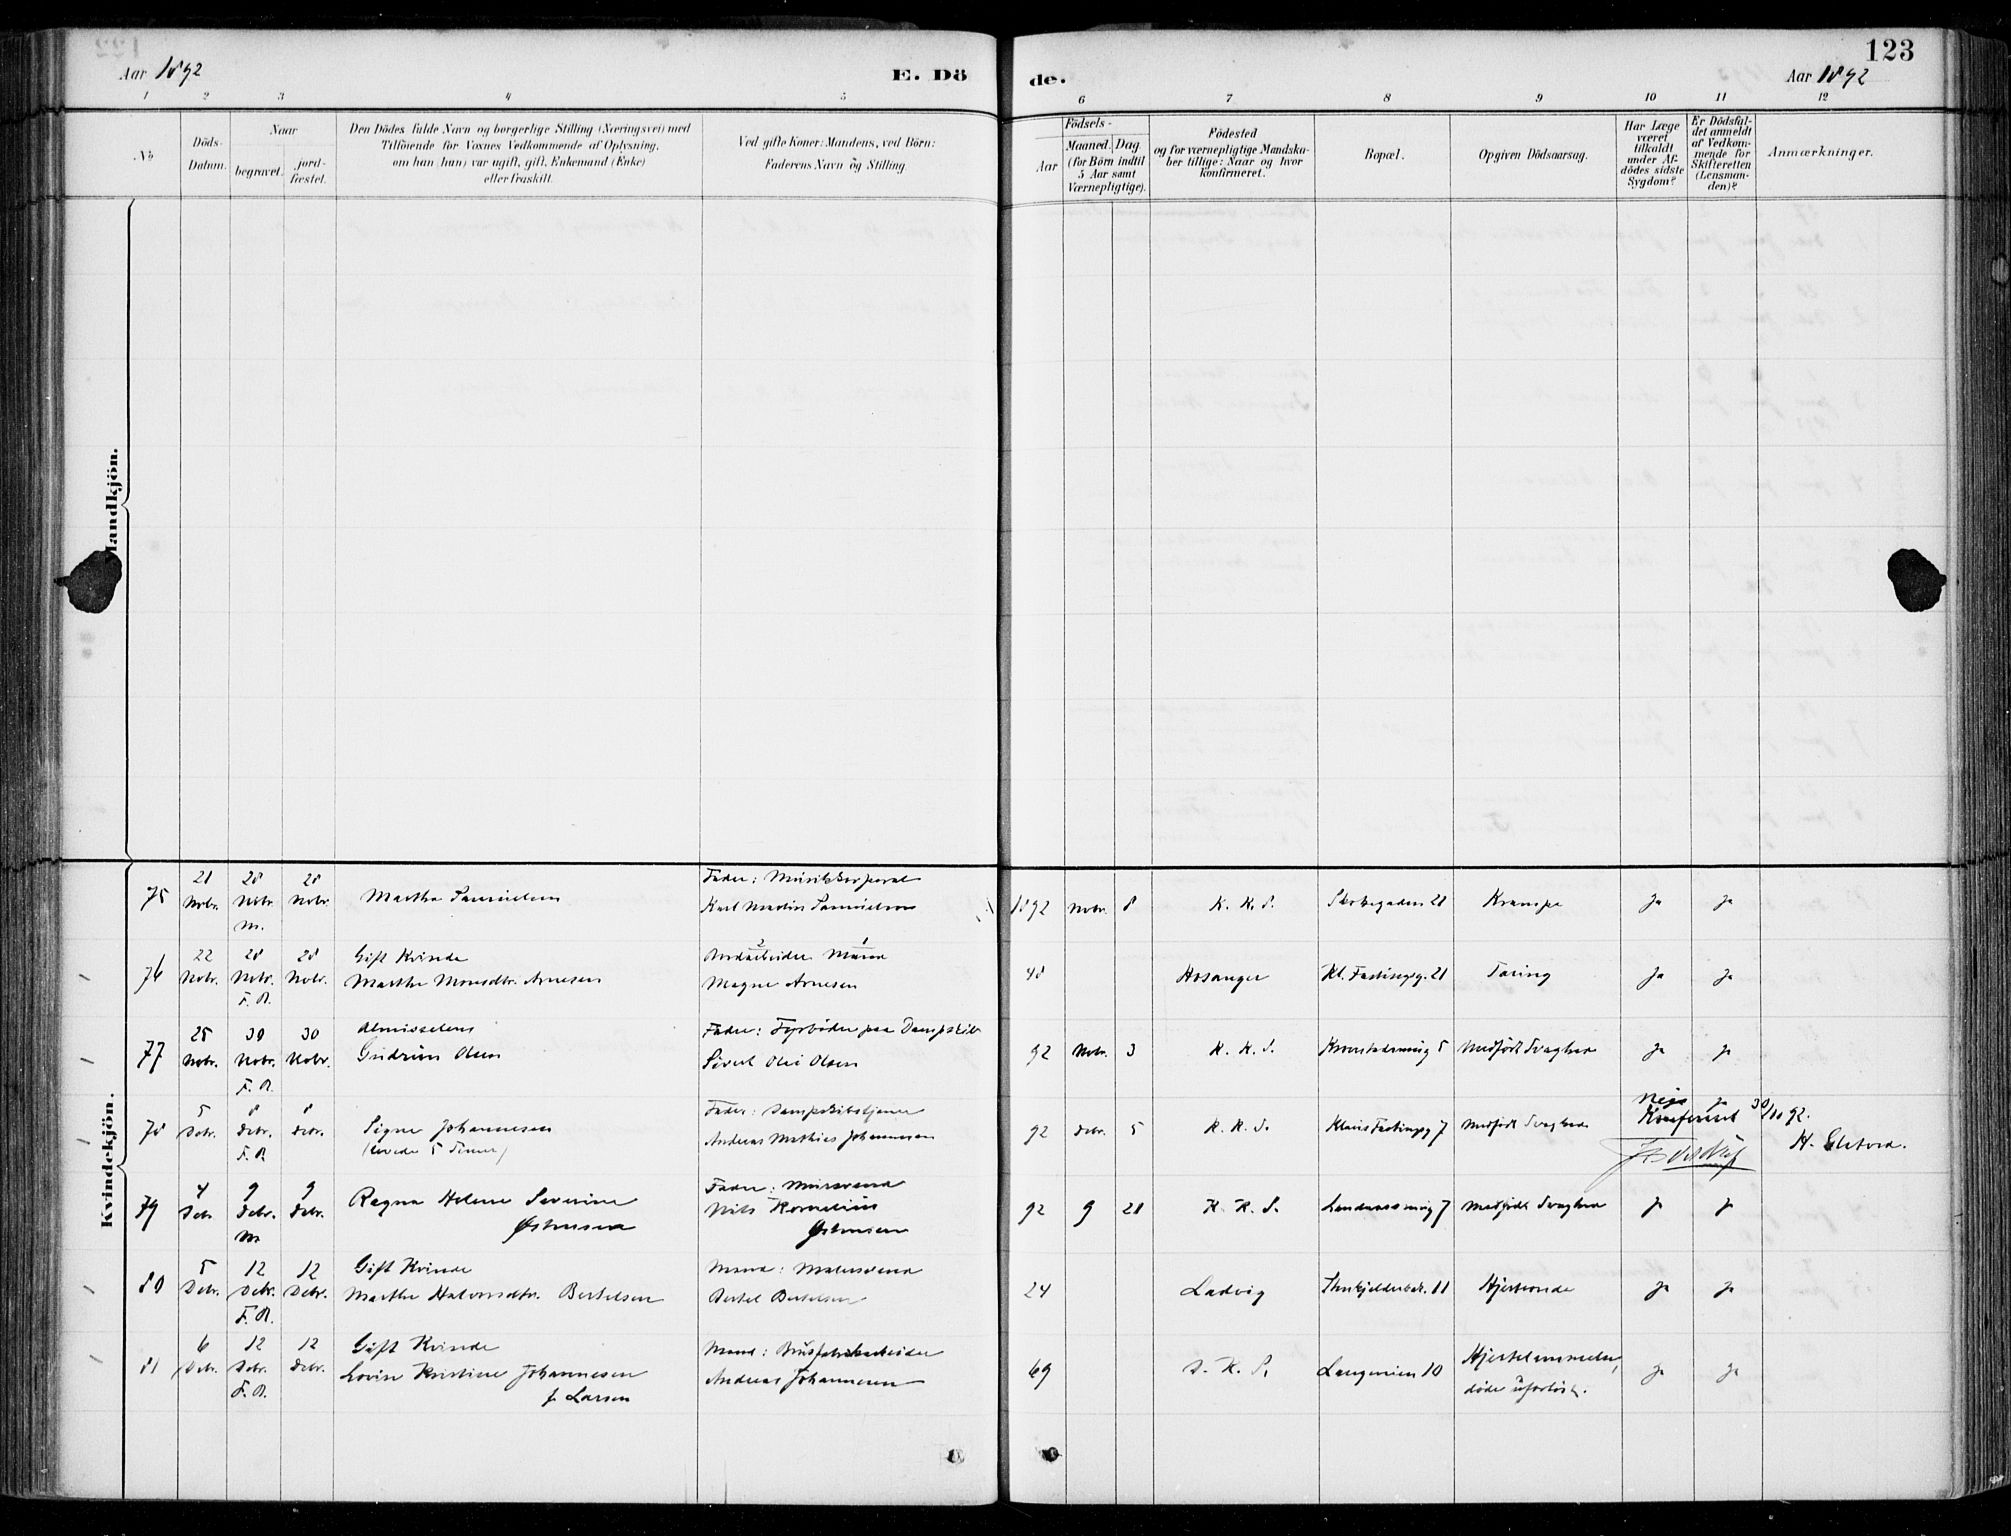 123
Aar 1892
E. Dö
de.
Aar 1892
1 2 3 4 5 6 7 8 9 10 11 12
No
Döds-
Datum.
Naar
begravet.
jord-
fæstet.
Den Dödes fulde Navn og borgerlige Stilling (Næringsvei) med
Tilföiende for Voxnes Vedkommende af Oplysning,
om han (hun) var ugift, gift, Enkemand (Enke)
eller fraskilt.
Ved gifte Koner: Mandens, ved Börn:
Faderens Navn og Stilling.
Födsels-
Aar
Maaned. Dag
(for Börn indtil
5 Aar samt
Værnepligtige).
Födested
og for værnepligtige Mandska-
ber tillige: Naar og hvor
konfirmeret.
Bopæl.
Opgiven Dödsaarsag.
Har Læge
været
tilkaldt
under Af-
dödes sidste
Sygdom?
Er Dödsfal-
det anmeldt
af Vedkom-
mende for
Skifteretten
(Lensman-
den)?
Anmærkninger.
Mandkjön.
Kvindekjön.
21 28 28 Fader: Musikkorporal
75 Nobr. Nobr. Nobr. Martha Samuelsen Karl Martin Samuelsen 1892 Nobr. 8 K. K. S. Skottegaden 21 Krampe Ja Ja
M.
22 28 28 Gift Kvinde Mand
76 Nobr. Nobr. Nobr. Marthe Monsdtr. Arnesen Magne Arnesen 48 Hosanger Kl. Fastingsg. 21 Tæring Ja Ja
F. A.
25 30 30 Fader: Fyrböder paa Dampskib
77 Nobr. Nobr. Nobr. Gudrun Olsen Sivert Olai Olsen 92 Nobr. 3 K. K. S. 5 Medfödt Svaghed Ja Ja
F. A.
5 8 8 Fader: Dampskibstjener Nei Ja
78 Debr. Debr. Debr. Signe Johannesen Andreas Mathias Johannesen 92 Debr. 5 K. K. S. Klaus Fastingsg 7 Medfödt Svaghed Konfereret 30/10 92.
F. A. (levede 5 Timer) H.
4 9 9 Fader: Mursvend
79 Debr. Debr. Debr. Ragna Helene Severine Nils Kornelius 92 9 28 K. K. S. 7 Medfödt Svaghed Ja Ja
M. Østensen Østensen
5 12 12 Gift Kvinde Mand: Malersvend
80 Debr. Debr. Debr. Marthe Halvorsdtr. Bertelsen Bertel Bertelsen 24 Ladvig 11 Hjerteonde Ja Ja
F. A.
6 12 12 Gift Kvinde Mand:
81 Debr. Debr. Debr. Lovise Kristine Johannesen Andreas Johannesen 69 D. K. S. 10 Hjertelammelse, Ja Ja
F. A. f. Larsen döde uforlöst.